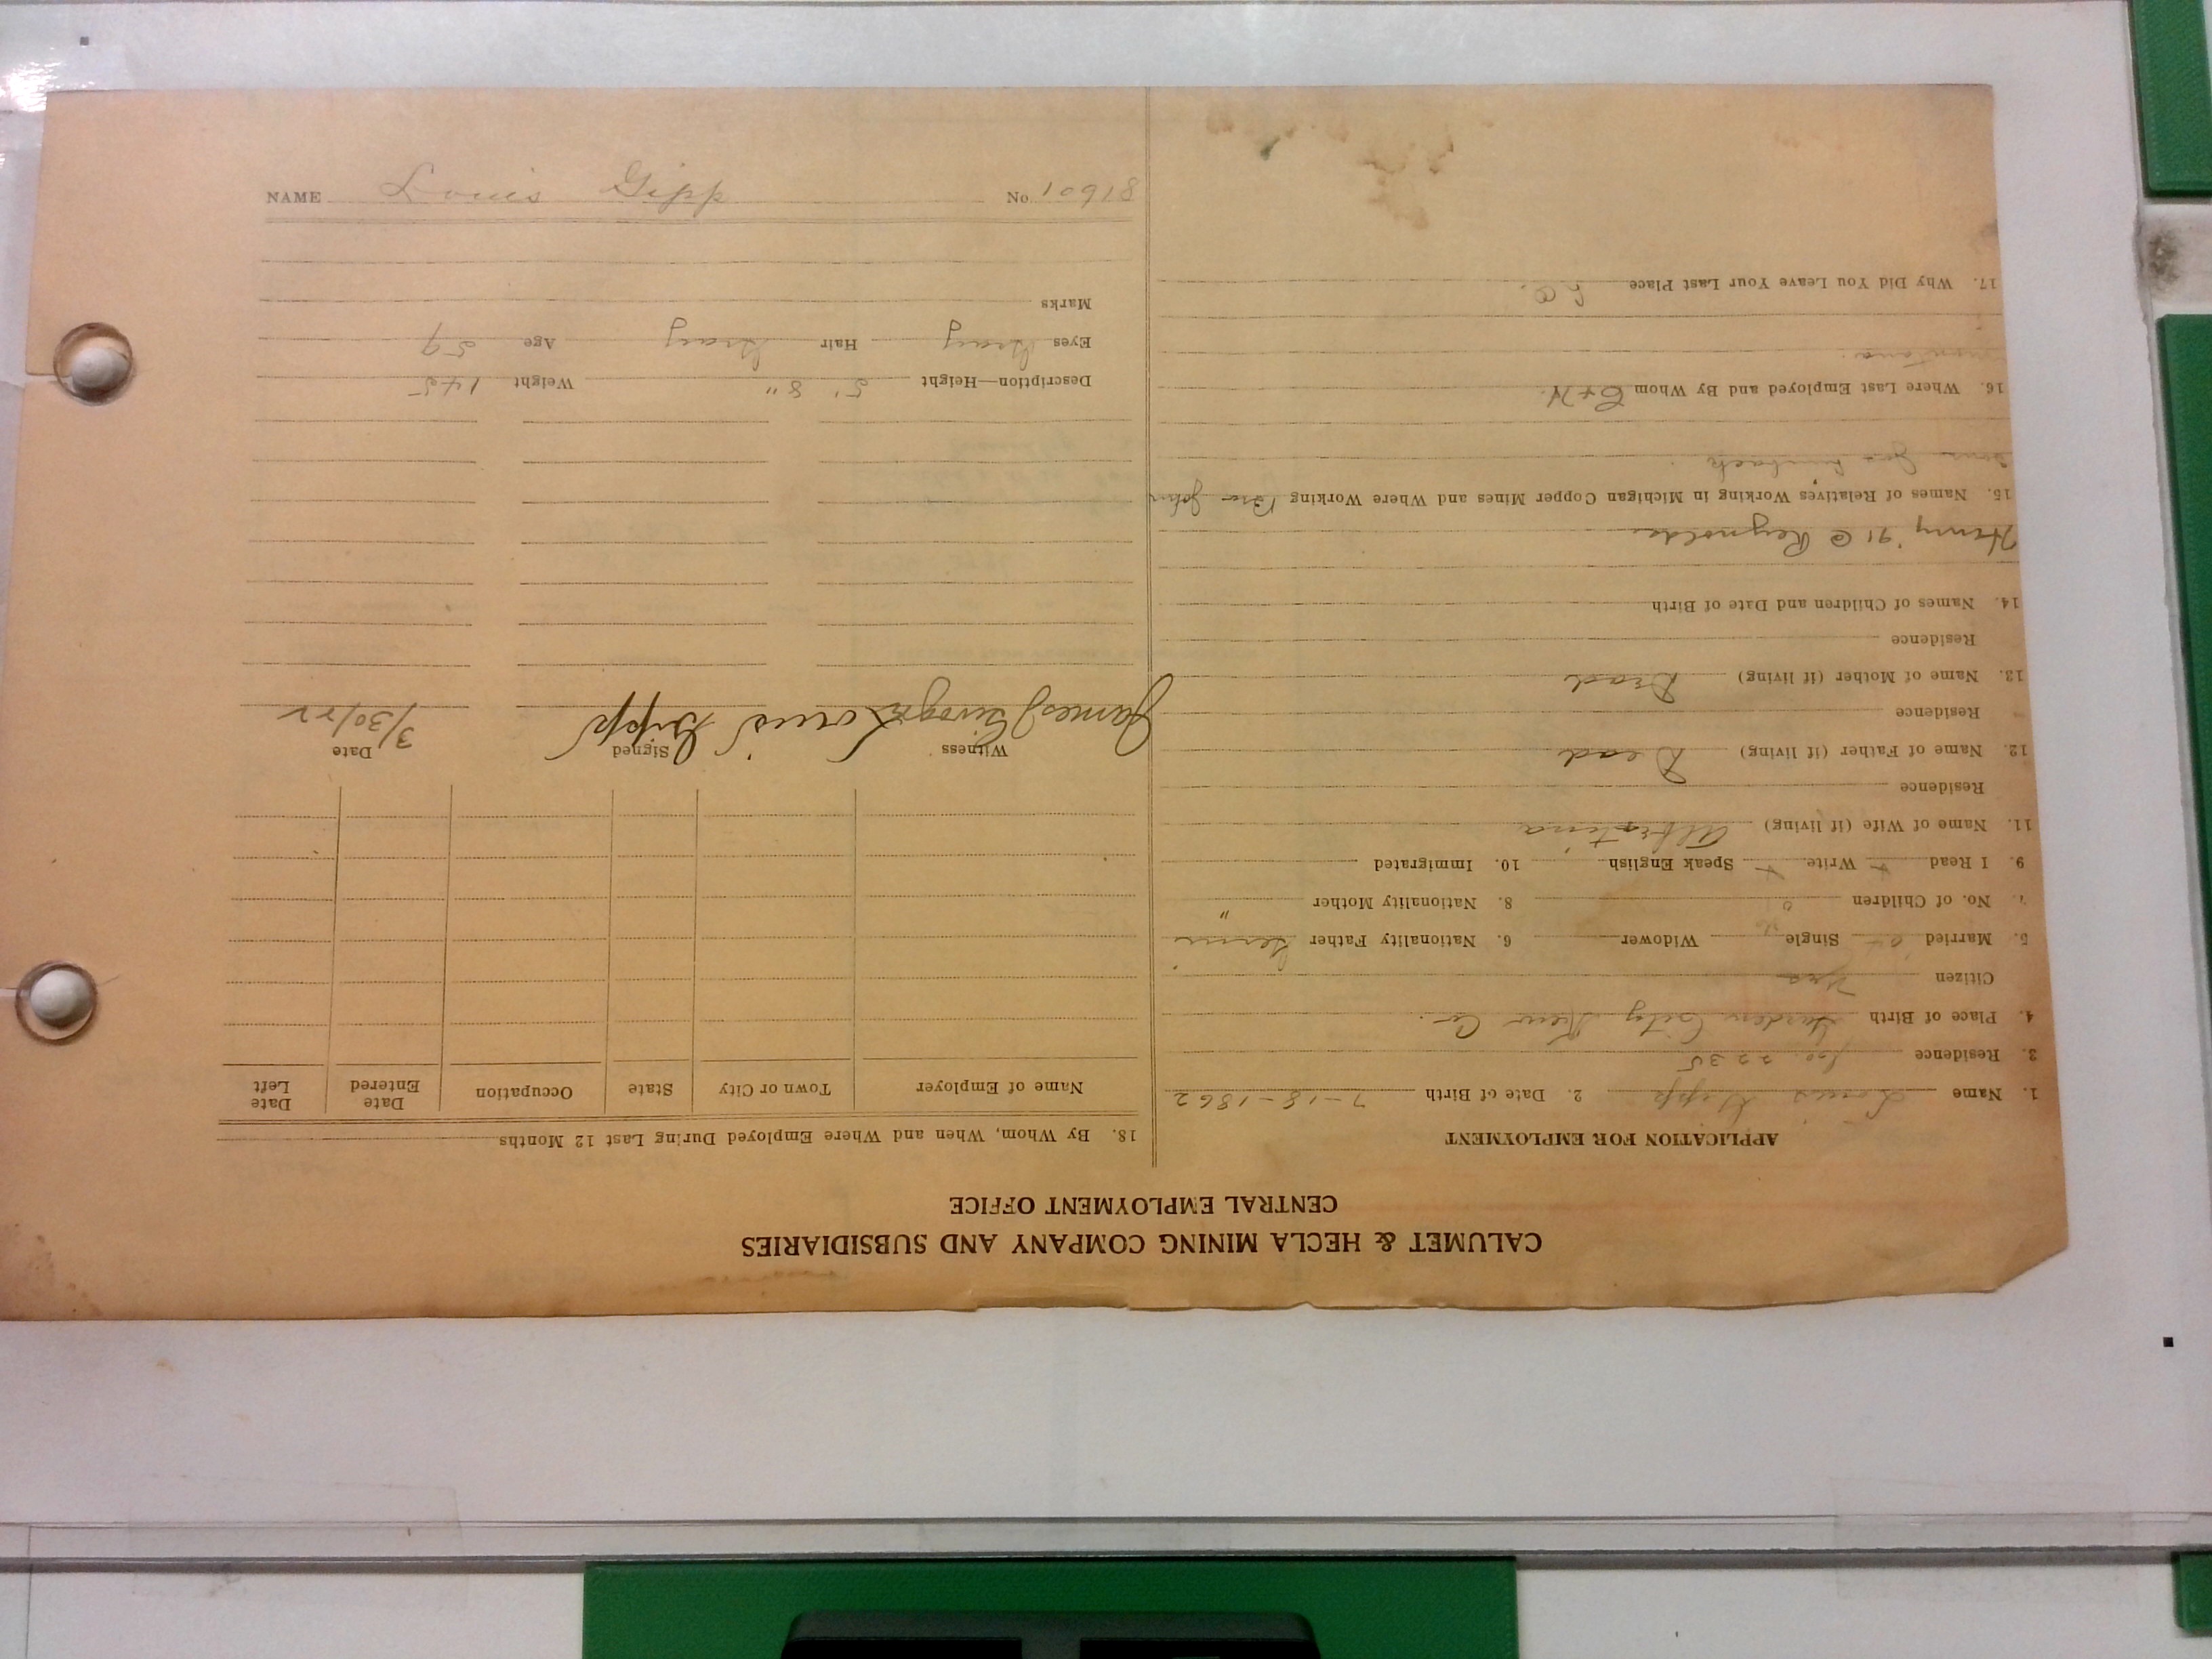 CALUMET & HECLA MINING COMPANY AND SUBSIDIARIES
CENTRAL EMPLOYMENT OFFICE
APPLICATION FOR EMPLOYMENT
1. Name Louis Gipp 2. Date of Birth 7-18-1862
3. Residence 2235
4. Place of Birth Garden City Kew Co.
Citizen Yes
5. Married Single Widower 6. Nationality Father Germ
7. No. of Children 8. Nationality Mother "
9. I Read + Write + Speak English 10. Immigrated
11. Name of Wife (if living) Albertina
Residence
12. Name of Father (if living) Dead
Residence
13. Name of Mother (if living) Dead
Residence
14. Names of Children and Date of Birth
Henry '91 @ Reynolds
15. Names of Relatives Working in Michigan Copper Mines and Where Working Bro John
16. Where Last Employed and By Whom C+H.
17. Why Did You Leave Your Last Place
18. By Whom, When and Where Employed During Last 12 Months
Name of Employer Town or City State Occupation Date Entered Date Left
Witness Signed Date
James Louis Gipp 3/30/22
Description—Height 5' 8" Weight 145
Eyes Gray Hair Gray Age 59
Marks
NAME Louis Gipp No. 10918